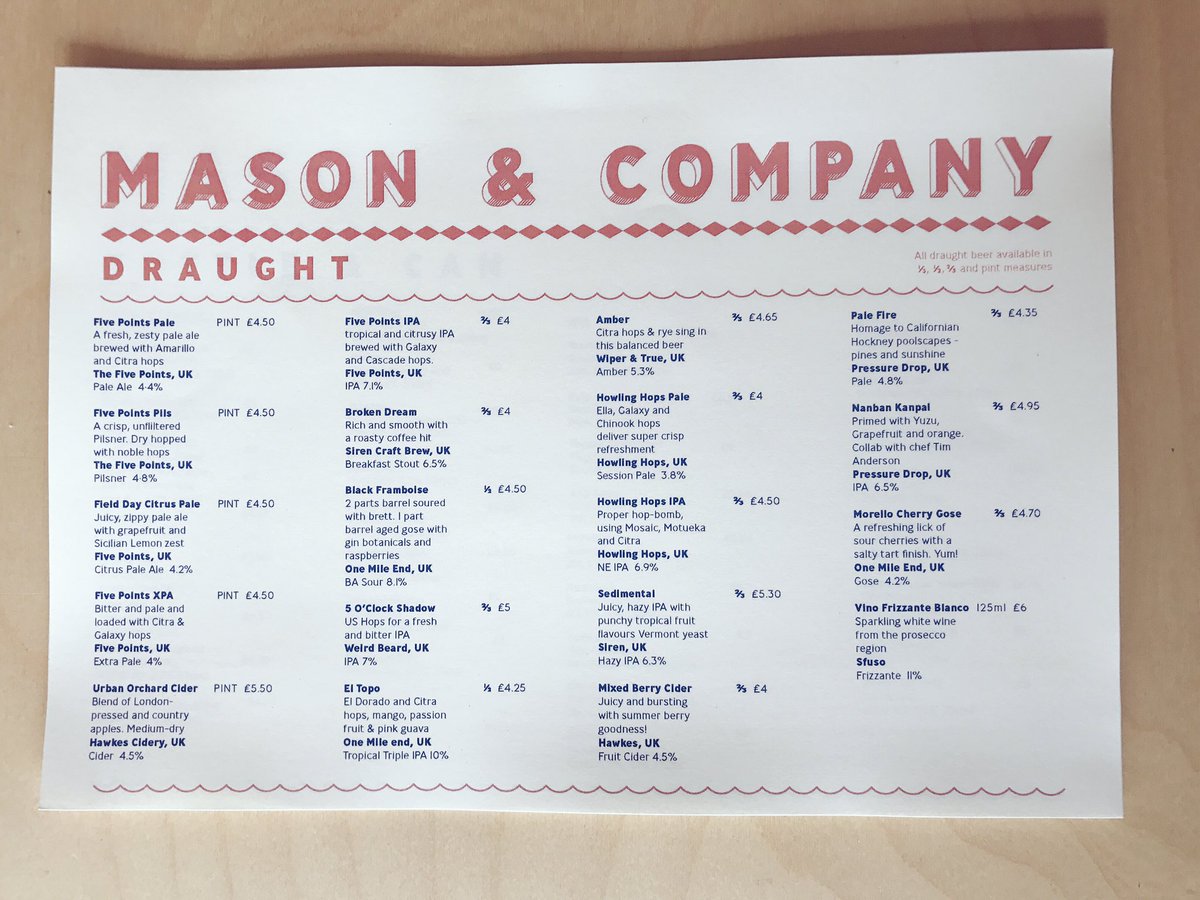 MASON & COMPANY
DRAUGHT
All draught beer available in
⅓, ½, ⅔ and pint measures
Five Points Pale PINT £4.50
A fresh, zesty pale ale
brewed with Amarillo
and Citra hops
The Five Points, UK
Pale Ale 4·4%
Five Points Pils PINT £4.50
A crisp, unfiltered
Pilsner. Dry hopped
with noble hops
The Five Points, UK
Pilsner 4·8%
Field Day Citrus Pale PINT £4.50
Juicy, zippy pale ale
with grapefruit and
Sicilian Lemon zest
Five Points, UK
Citrus Pale Ale 4.2%
Five Points XPA PINT £4.50
Bitter and pale and
loaded with Citra &
Galaxy hops
Five Points, UK
Extra Pale 4%
Urban Orchard Cider PINT £5.50
Blend of London-
pressed and country
apples. Medium-dry
Hawkes Cidery, UK
Cider 4.5%
Five Points IPA ⅔ £4
tropical and citrusy IPA
brewed with Galaxy
and Cascade hops.
Five Points, UK
IPA 7.1%
Broken Dream ⅔ £4
Rich and smooth with
a roasty coffee hit
Siren Craft Brew, UK
Breakfast Stout 6.5%
Black Framboise ½ £4.50
2 parts barrel soured
with brett. 1 part
barrel aged gose with
gin botanicals and
raspberries
One Mile End, UK
BA Sour 8.1%
5 O'Clock Shadow ⅔ £5
US Hops for a fresh
and bitter IPA
Weird Beard, UK
IPA 7%
El Topo ½ £4.25
El Dorado and Citra
hops, mango, passion
fruit & pink guava
One Mile end, UK
Tropical Triple IPA 10%
Amber ⅔ £4.65
Citra hops & rye sing in
this balanced beer
Wiper & True, UK
Amber 5.3%
Howling Hops Pale ⅔ £4
Ella, Galaxy and
Chinook hops
deliver super crisp
refreshment
Howling Hops, UK
Session Pale 3.8%
Howling Hops IPA ⅔ £4.50
Proper hop-bomb,
using Mosaic, Motueka
and Citra
Howling Hops, UK
NE IPA 6.9%
Sedimental ⅔ £5.30
Juicy, hazy IPA with
punchy tropical fruit
flavours Vermont yeast
Siren, UK
Hazy IPA 6.3%
Mixed Berry Cider ⅔ £4
Juicy and bursting
with summer berry
goodness!
Hawkes, UK
Fruit Cider 4.5%
Pale Fire ⅔ £4.35
Homage to Californian
Hockney poolscapes -
pines and sunshine
Pressure Drop, UK
Pale 4.8%
Nanban Kanpai ⅔ £4.95
Primed with Yuzu,
Grapefruit and orange.
Collab with chef Tim
Anderson
Pressure Drop, UK
IPA 6.5%
Morello Cherry Gose ⅔ £4.70
A refreshing lick of
sour cherries with a
salty tart finish. Yum!
One Mile End, UK
Gose 4.2%
Vino Frizzante Bianco 125ml £6
Sparkling white wine
from the prosecco
region
Sfuso
Frizzante 11%